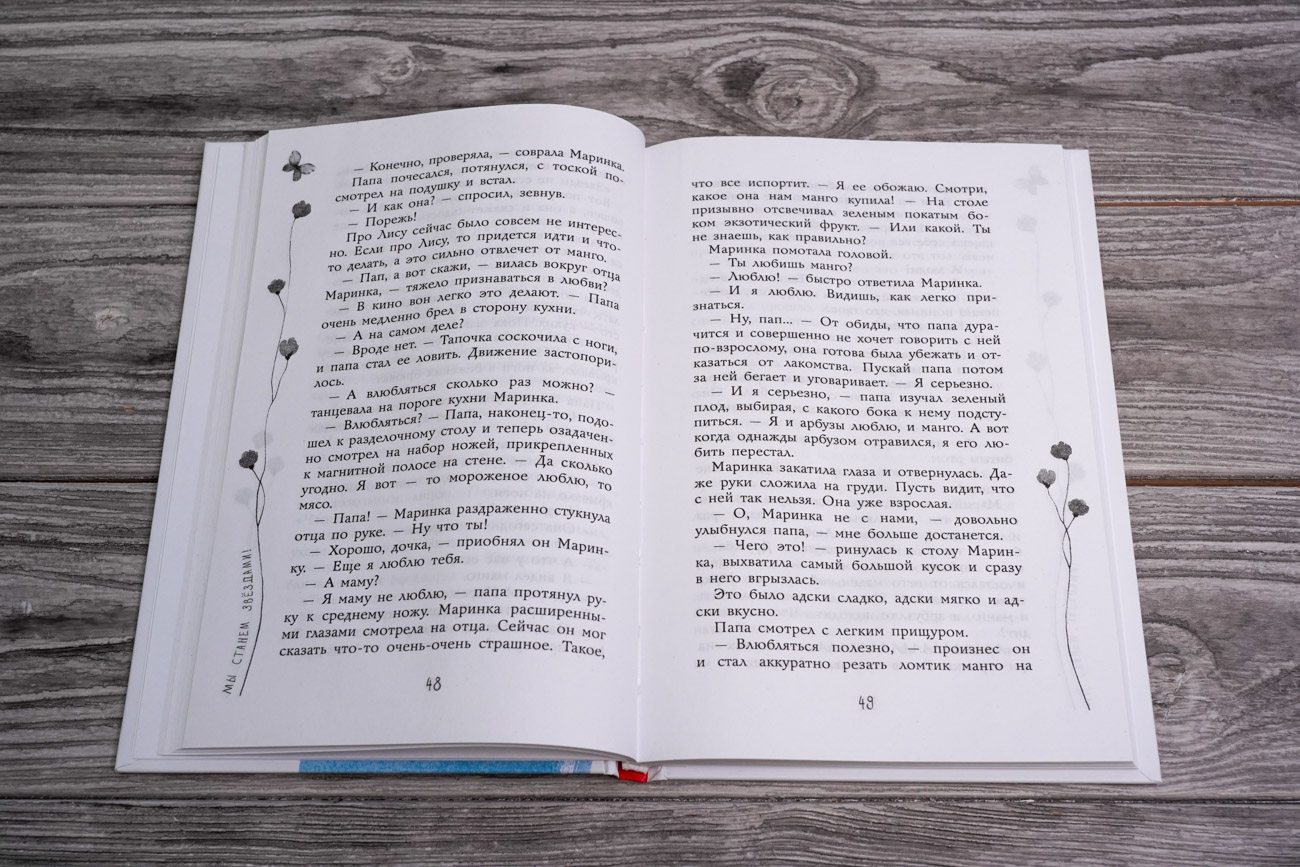 — Конечно, проверяла, — соврала Маринка.
Папа почесался, потянулся, с тоской по-
смотрел на подушку и встал.
— И как она? — спросил, зевнув.
— Порежь!
Про Лису сейчас было совсем не интерес-
но. Если про Лису, то придется идти и что-
то делать, а это сильно отвлечет от манго.
— Пап, а вот скажи, — вилась вокруг отца
Маринка, — тяжело признаваться в любви?
— В кино вон легко это делают. — Папа
очень медленно брел в сторону кухни.
— А на самом деле?
— Вроде нет. — Тапочка соскочила с ноги,
и папа стал ее ловить. Движение застопори-
лось.
— А влюбляться сколько раз можно? —
танцевала на пороге кухни Маринка.
— Влюбляться? — Папа, наконец-то, подо-
шел к разделочному столу и теперь озадачен-
но смотрел на набор ножей, прикрепленных
к магнитной полосе на стене. — Да сколько
угодно. Я вот — то мороженое люблю, то
мясо.
— Папа! — Маринка раздраженно стукнула
отца по руке. — Ну что ты!
— Хорошо, дочка, — приобнял он Марин-
ку. — Еще я люблю тебя.
— А маму?
— Я маму не люблю, — папа протянул ру-
ку к среднему ножу. Маринка расширенны-
ми глазами смотрела на отца. Сейчас он мог
сказать что-то очень-очень страшное. Такое,
48
МЫ СТАНЕМ ЗВЁЗДАМИ!
что все испортит. — Я ее обожаю. Смотри,
какое она нам манго купила! — На столе
призывно отсвечивал зеленым покатым бо-
ком экзотический фрукт. — Или какой. Ты
не знаешь, как правильно?
Маринка помотала головой.
— Ты любишь манго?
— Люблю! — быстро ответила Маринка.
— И я люблю. Видишь, как легко при-
знаться.
— Ну, пап... — От обиды, что папа дура-
чится и совершенно не хочет говорить с ней
по-взрослому, она готова была убежать и от-
казаться от лакомства. Пускай папа потом
за ней бегает и уговаривает. — Я серьезно.
— И я серьезно, — папа изучал зеленый
плод, выбирая, с какого бока к нему подсту-
питься. — Я и арбузы люблю, и манго. А вот
когда однажды арбузом отравился, я его лю-
бить перестал.
Маринка закатила глаза и отвернулась. Да-
же руки сложила на груди. Пусть видит, что
с ней так нельзя. Она уже взрослая.
— О, Маринка не с нами, — довольно
улыбнулся папа, — мне больше достанется.
— Чего это! — ринулась к столу Марин-
ка, выхватила самый большой кусок и сразу
в него вгрызлась.
Это было адски сладко, адски мягко и ад-
ски вкусно.
Папа смотрел с легким прищуром.
— Влюбляться полезно, — произнес он
и стал аккуратно резать ломтик манго на
49